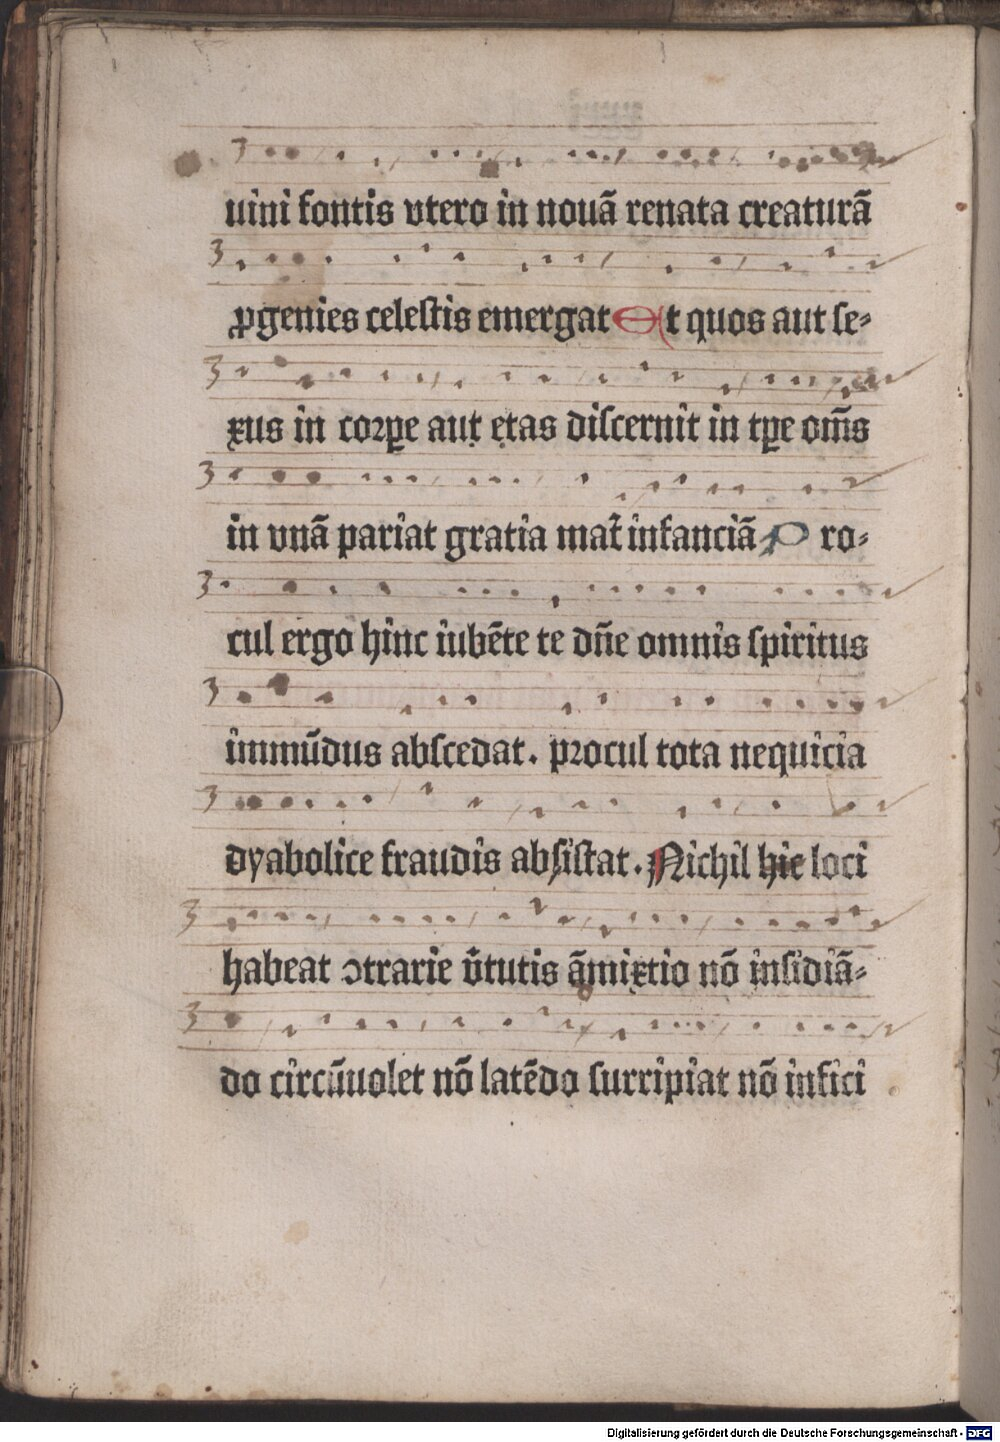 uini fontis vtero in nouā renata creaturā
ꝓgenies celestis emergat Et quos aut se-
xus in corꝑe aut etas discernit in tꝑe om̄s
in vnā pariat gratia mat̄ infanciā Pro-
cul ergo hinc iubēte te dn̄e omnis spiritus
immūdus abscedat. procul tota nequicia
dyabolice fraudis absistat. Nichil hic loci
habeat ↄtrarie v̄tutis āmixtio nō insidiā-
do circūuolet nō latēdo surripiat nō infici
Digitalisierung gefördert durch die Deutsche Forschungsgemeinschaft - DFG